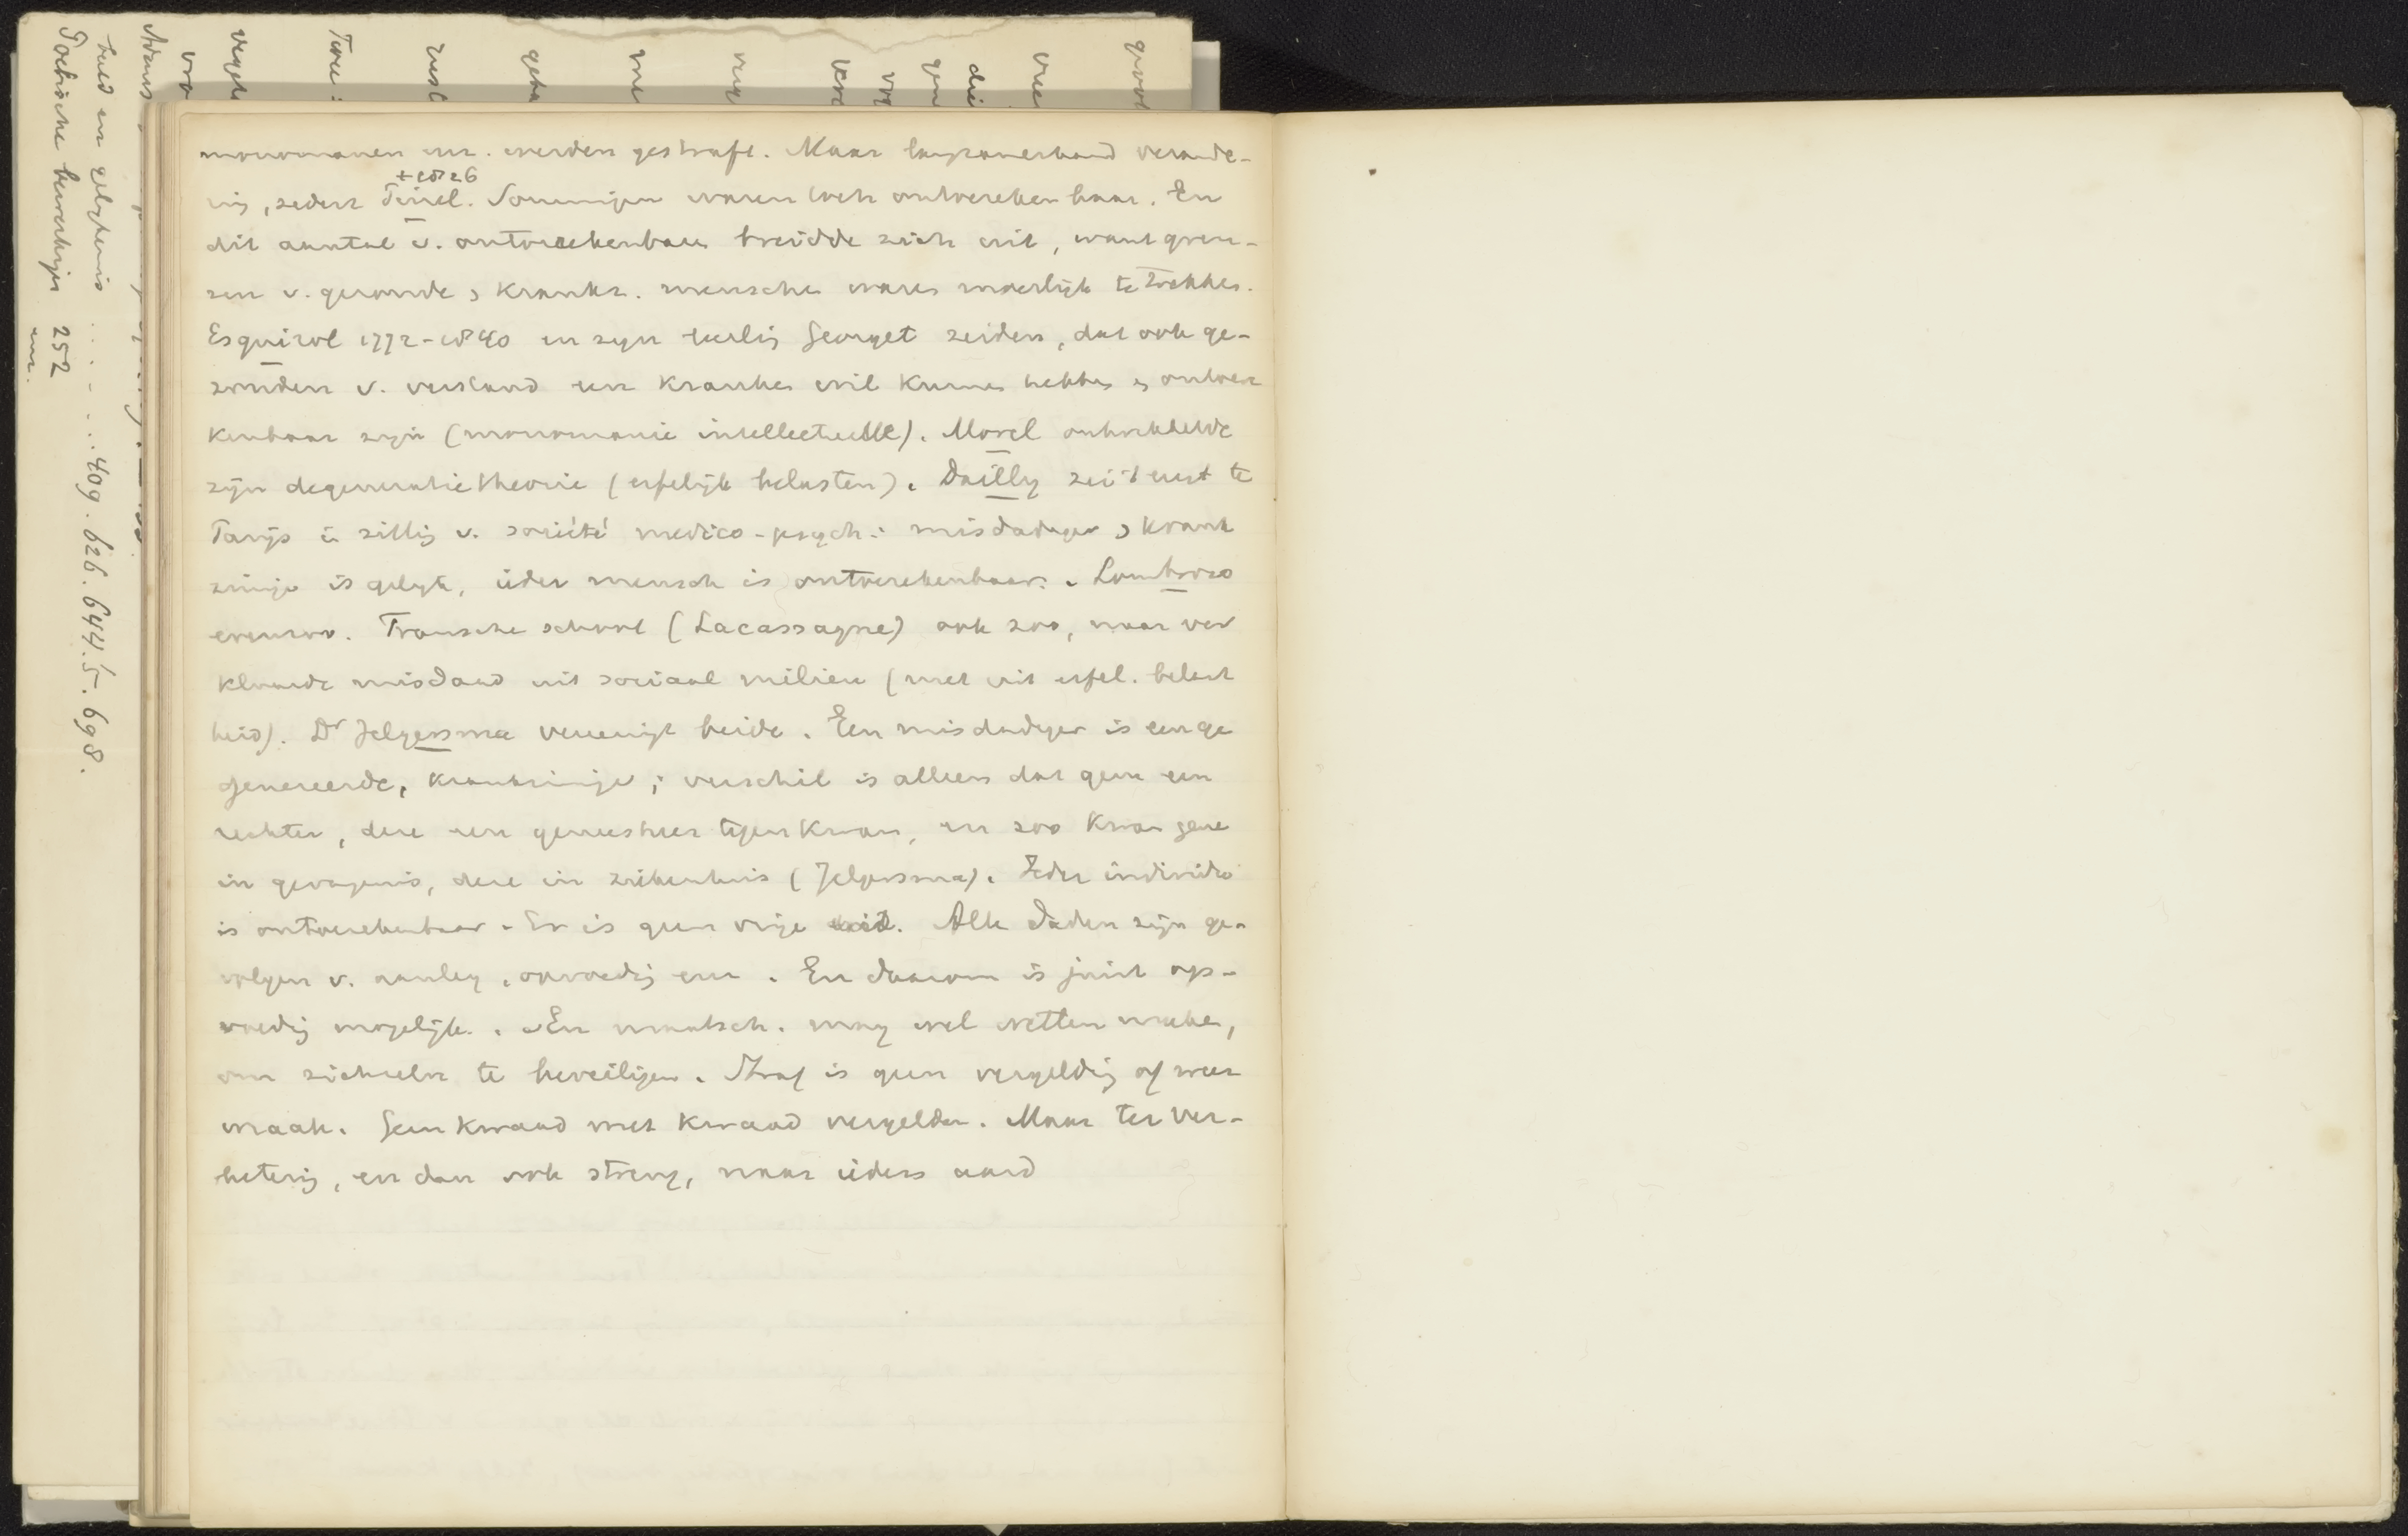 monomanen enz. werden gestraft. Maar langzamerhand verande-
ring, sedert Pinel. Sommigen waren toch ontoerekenbaar. En
† 1826
dit aantal v. ontoerekenbare breidde zich uit, want gren-
zen v. gezonde & krankz. menschen waren moeilijk te trekken.
Esquirol 1772-1840 en zijn leerlig Georget zeiden, dat ook ge-
zonden v. verstand een kranken wil kunnen hebben & ontoere
kenbaar zijn (monomanie intellectuelle). Morel ontwikkelde
zijn degeneratietheorie (erfelijk belasten). Dailly zei 't eerst te
Parijs in zittig v. société medico-psych.: misdadiger & krank
zinnige is gelijk, ieder mensch is ontoerekenbaar. Lombroso
evenzoo. Fransche school (Lacassagne) ook zoo, maar ver
klaarde misdaad uit sociaal milieu (niet uit erfel. belast
heid). Dr Jelgersma vereenigt beide. Een misdadiger is een ge
genereerde, krankzinnige; verschil is alleen dat gene een
rechter, deze een geneesheer tegenkwam, en zoo kwam gene
in gevangenis, deze in ziekenhuis (Jelgersma). Ieder individu
is ontoerekenbaar. Er is geen vrije wil. Alle daden zijn ge-
volgen v. aanleg, opvoedig enz. En daarom is juist op-
voedig mogelijk. En maatsch. mag wel wetten maken,
om zichzelv te beveiligen. Straf is geen vergeldig of weer
wraak. Geen kwaad met kwaad vergelden. Maar ter ver-
beterig, en dan ook streng, naar ieders aard
gevol
vree
die
gen
vre
verg
me
geha
resl
Twee:
vergel
vro
Adams
beeld en gelijkenis .... 409. 626. 644.5. 698.
Poetische bewerkigen 252
enz.